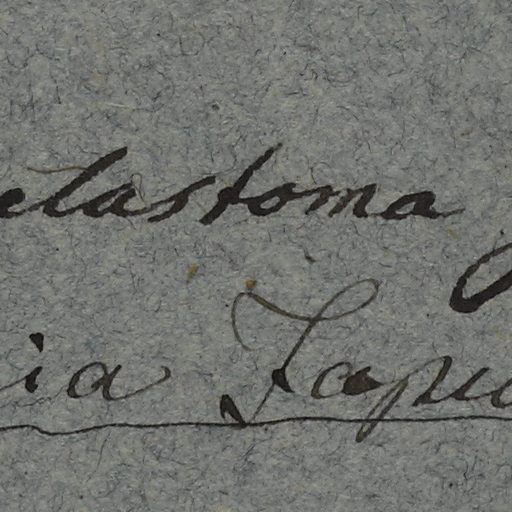 elastoma
ia Japu